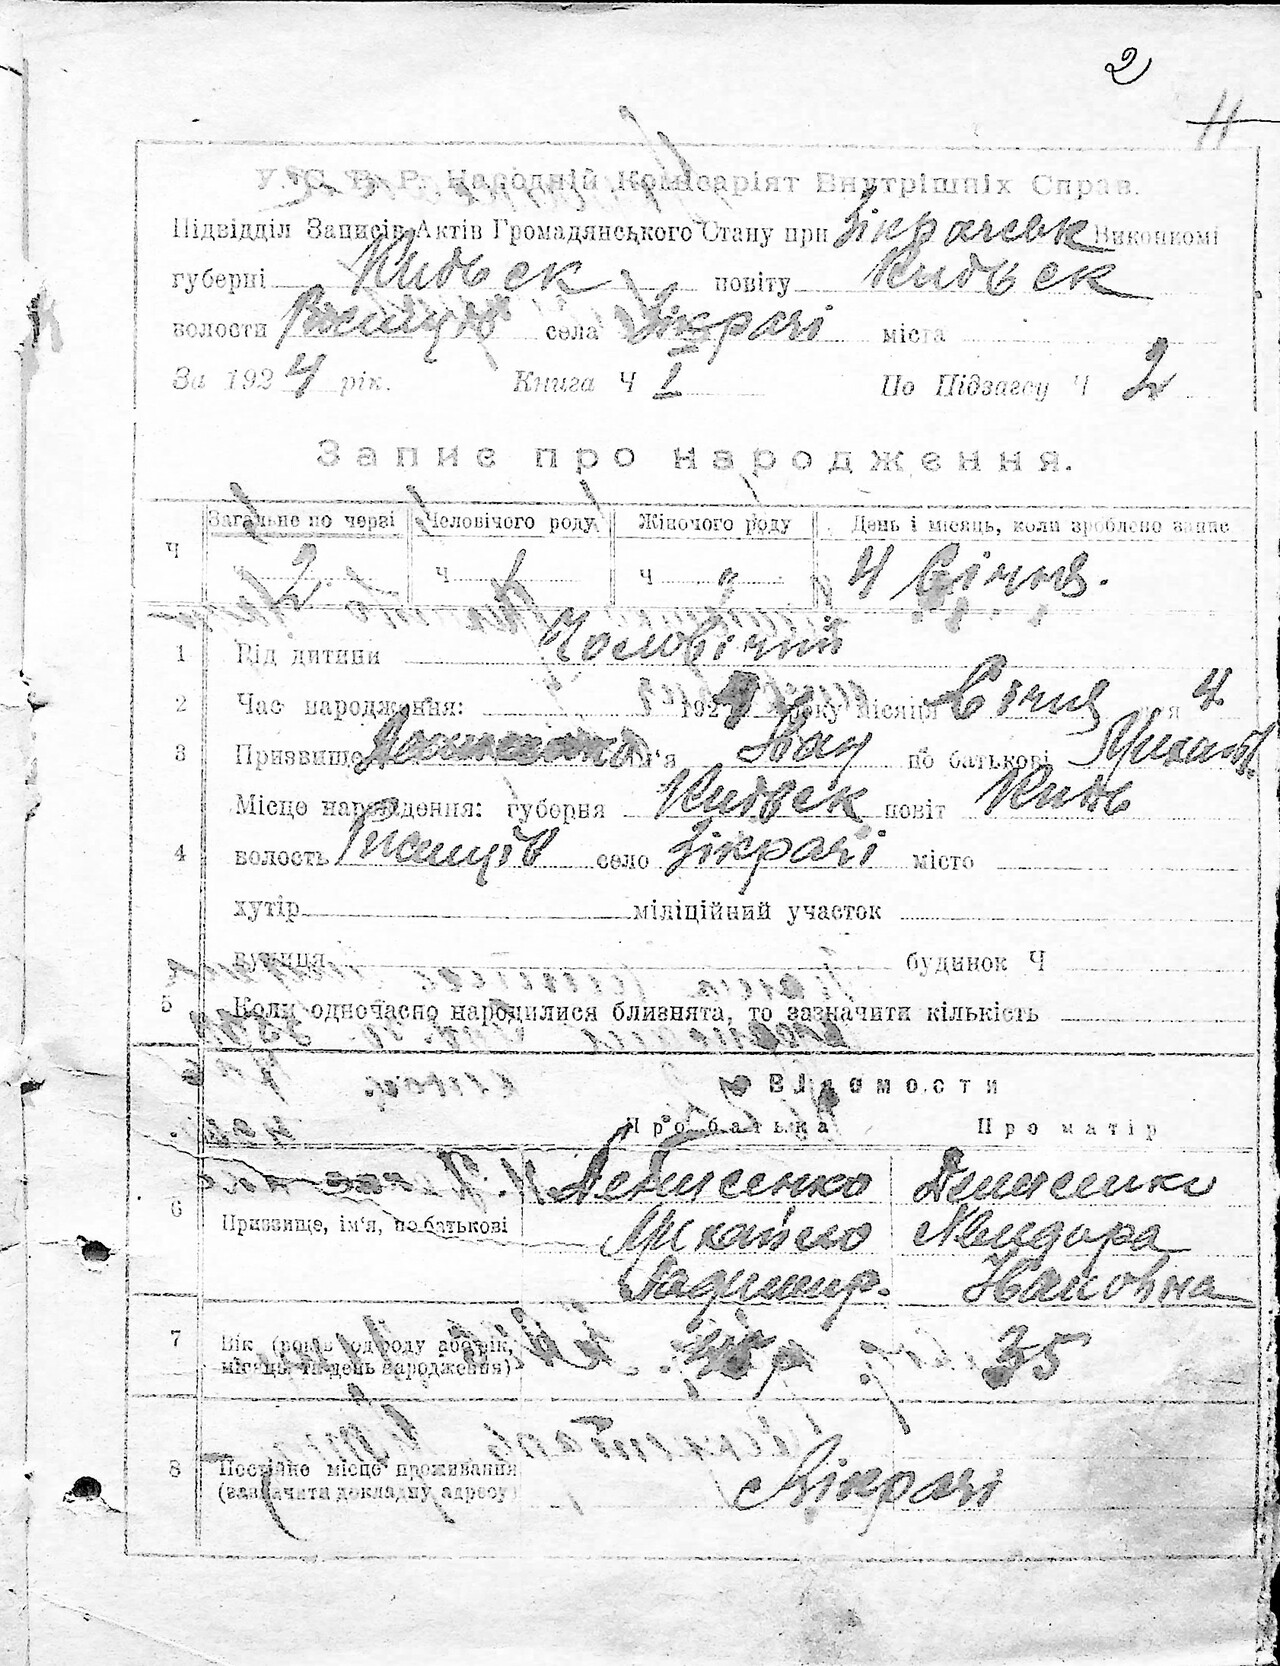 2
11
У. С. Р. Р. Народній Комісаріят Внутрішніх Справ.
Підвідділ Записів Актів Громадянського Стану при Зікрачськ Виконкомі
губерні Київськ повіту Київськ
волости села Зікрачі міста
За 1924 рік. Книга Ч I По Підзагсу Ч 2
Запис про народження.
Загальне по черзі Человічого роду Жіночого роду День і місяць, коли зроблено запис
Ч 2 Ч 1 Ч " 4 Січня.
1 Від дитини Чоловічий
2 Час народження: 1924 року місяця Січня дня 4
3 Призвище ім'я Іван по батькові
Місце народження: губерня Київськ повіт Київ
4 волость село Зікрачі місто
хутір міліційний участок
вулиця будинок Ч
5 Коли одночасно народилися близнята, то зазначити кількість
Відомости
Про батька Про матір
6 Призвище, ім'я, по батькові
Михайло
Ивановна
7 Вік (років одроду або рік, місяць та день народження) 35
8 Постійне місце проживання (зазначити докладну адресу) Зікрачі